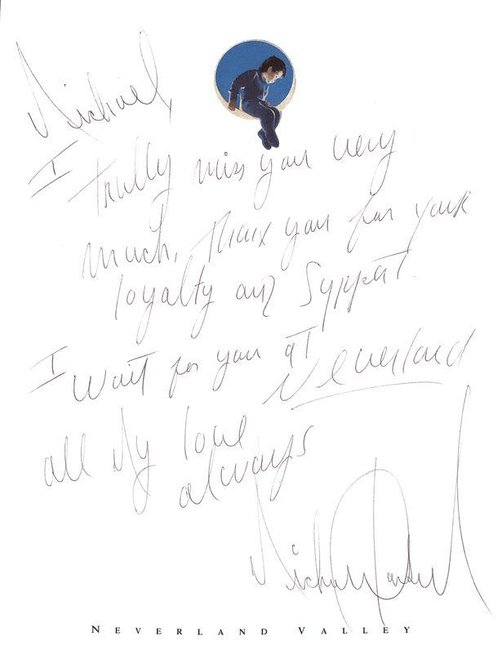 Michael,
I trully miss you very
much, thank you for your
loyalty and support.
I wait for you at Neverland
all my love
always
Michael Jackson
NEVERLAND VALLEY